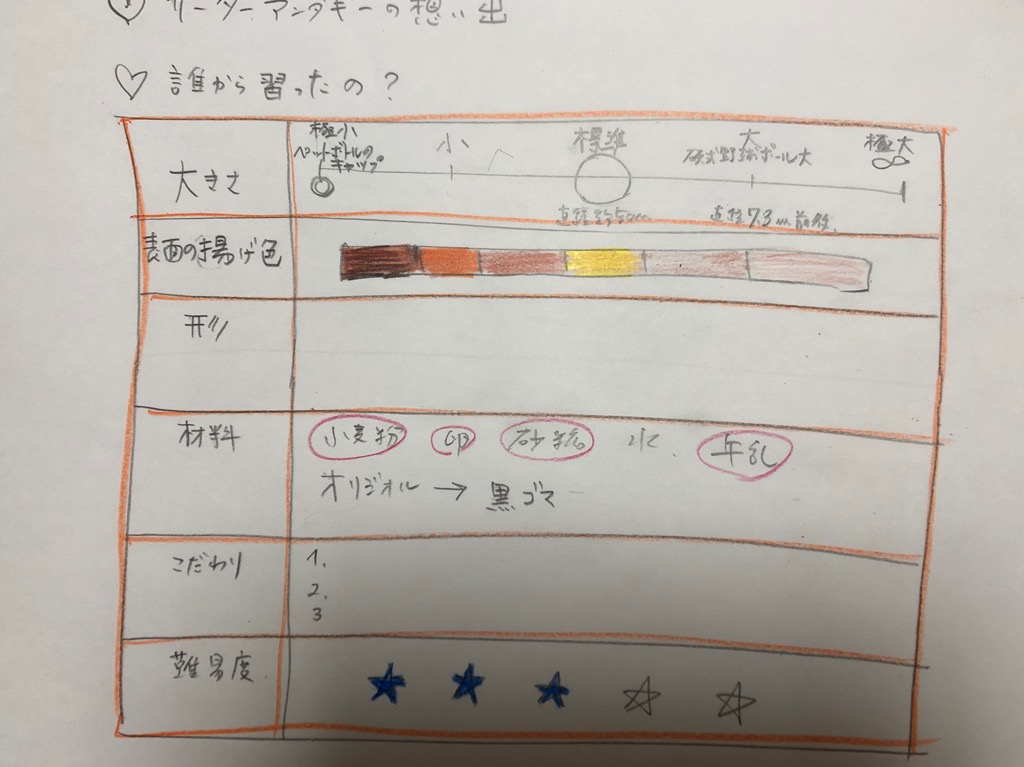 ♡ サーターアンダギーの想い出
♡ 誰から習ったの？
大きさ
極小
ペットボトルの
キャップ
小
標準
直径約5cm
大
硬式野球ボール大
直径7.3cm前後
極大
∞
表面の揚げ色
形
材料
小麦粉 卵 砂糖 水 牛乳
オリジナル → 黒ゴマ
こだわり
1.
2.
3
難易度
★ ★ ★ ☆ ☆